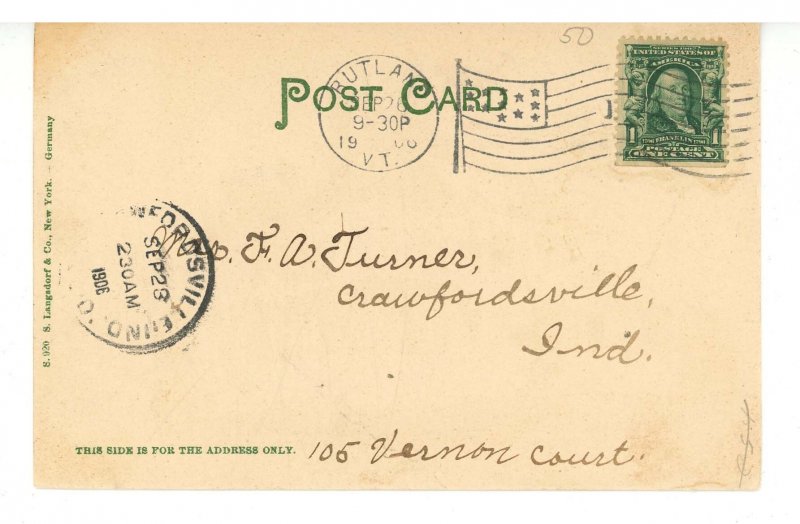 50
POST CARD
RUTLAND
SEP 26
9-30P
19 06
VT.
SERIES 1902
UNITED STATES OF AMERICA
1706 FRANKLIN 1790
POSTAGE
1 ONE CENT
S. 920 S. Langsdorf & Co., New York. - Germany
WFORDSVILLE IND.
SEP 28
230AM
1906
Mrs. F. A. Turner,
Crawfordsville,
Ind.
THIS SIDE IS FOR THE ADDRESS ONLY.
105 Vernon Court.